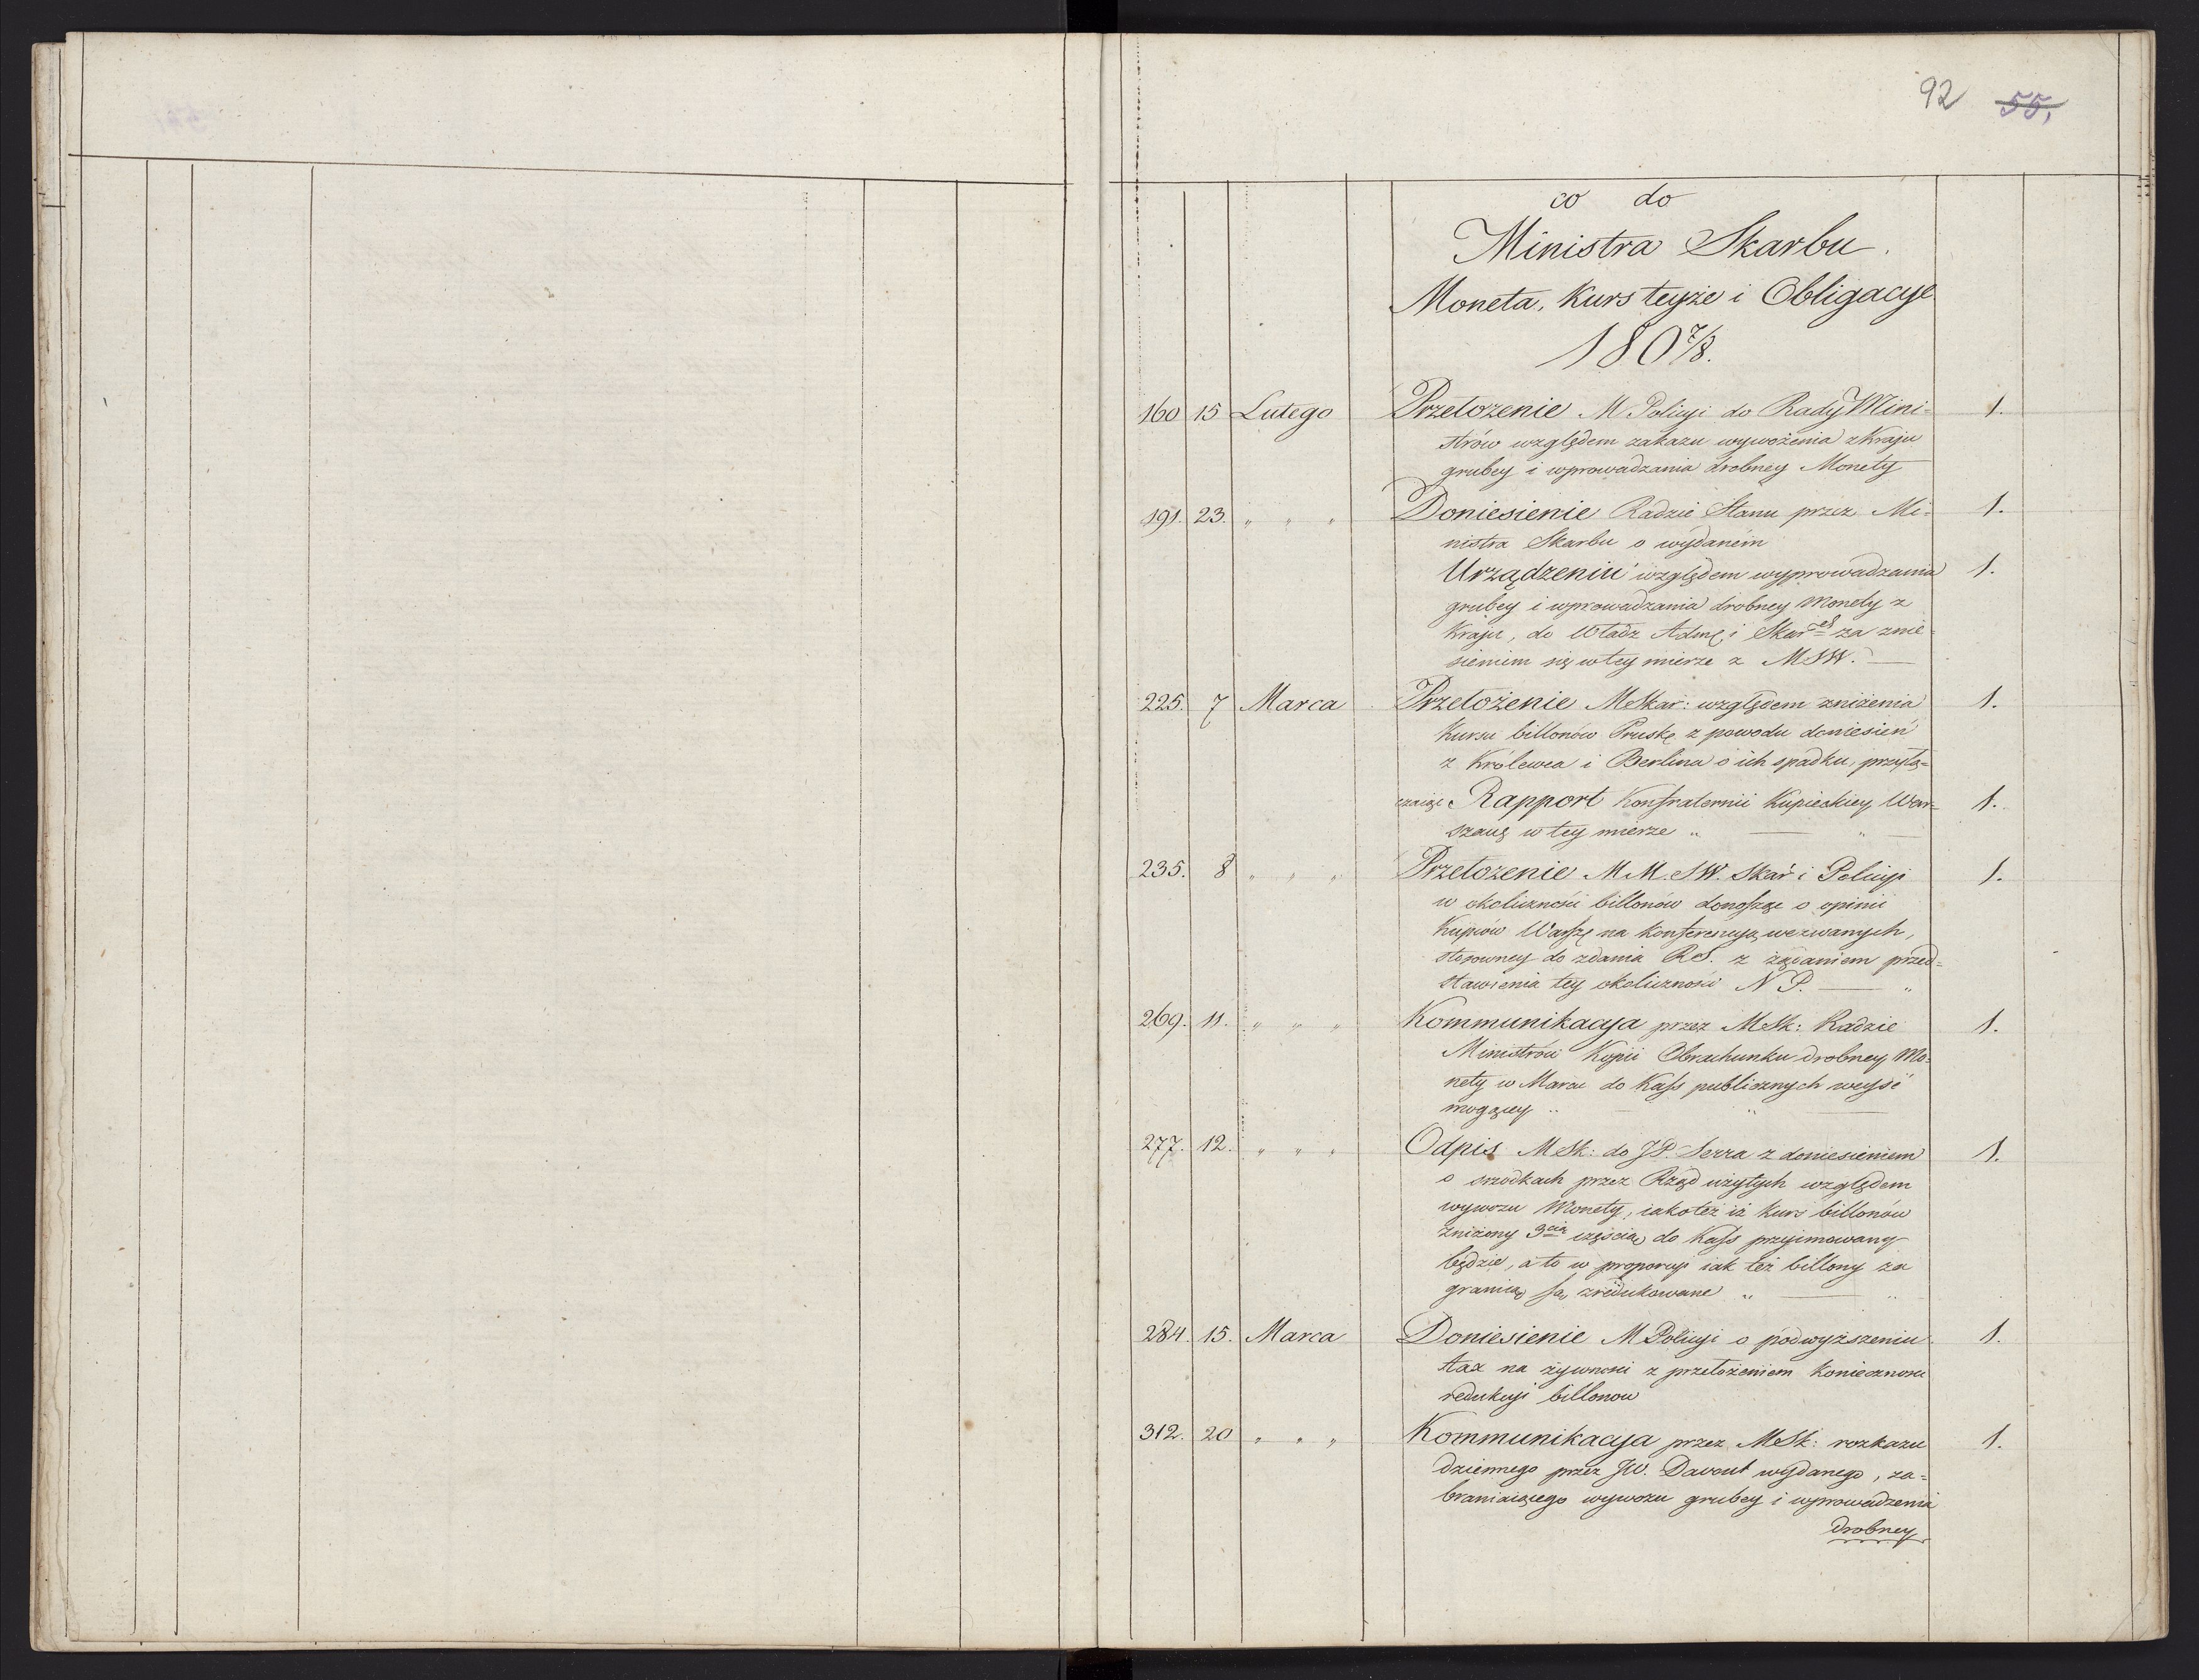 92 55,
co do
Ministra Skarbu.
Moneta, Kurs teyże i Obligacye
180 7/8.
160 15 Lutego Przełożenie M Policyi do Rady Mini= 1.
strów względem zakazu wywożenia z Kraju
grubey i wprowadzania drobney Monety
191. 23. " " " Doniesienie Radzie Stanu przez Mi= 1.
nistra Skarbu o wydanem
Urządzeniu względem wyprowadzania 1.
grubey i wprowadzania drobney Monety z
Kraju, do Władz Admę i Skar za znie=
sieniem się w tey mierze z MSW.
225. 7 Marca Przełożenie MSkar: względem zniżenia 1.
Kursu billonów Pruskę z powodu doniesień
z Królewca i Berlina o ich spadku, przyłą=
czaiąc Rapport Konfraternii Kupieckiey War= 1.
szawę w tey mierze "
235. 8 " " " Przełożenie M M. SW. Skar i Policyi 1.
w okoliczności billonów donosząc o opinii
Kupców Warszę na Konferencyą wezwanych,
stosowney do zdania RS. z żądaniem przed=
stawienia tey okoliczności N P. "
269. 11. " " " Kommunikacya przez MSk: Radzie 1.
Ministrów Kopii Obrachunku drobney Mo=
nety w Marcu do Kass publicznych weyść
mogącey " "
277. 12. " " " Odpis MSk: do JP. Serra z doniesieniem 1.
o srzodkach przez Rząd użytych względem
wywozu Monety, iakoteż iż Kurs billonów
zniżony 3cią częścią do Kass przyimowany
będzie, a to w proporcyi iak też billony za
granicą są zredukowane " "
284. 15. Marca Doniesienie M Policyi o podwyższeniu 1.
tax na żywności z przełożeniem Konieczności
redukcyi billonow
312. 20 " " " Kommunikacya przez MSk: rozkazu 1.
dziennego przez JW. Davout wydanego, za=
braniaiącego wywozu grubey i wprowadzenia
drobney